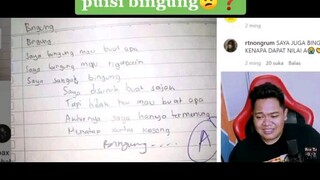 puisi bingung😟❓
Bingung
Bingung
Saya bingung mau buat apa
Saya bingung mau ngapain
Saya sangat bingung
Saya disuruh buat sajak
Tapi tidak tau mau buat apa
Akhirnya saya hanya termenung
Menatap kertas kosong
Bingung....
A
2 ming
rtnongrum SAYA JUGA BING
KENAPA DAPAT NILAI A😭
2 ming 20 suka Balas